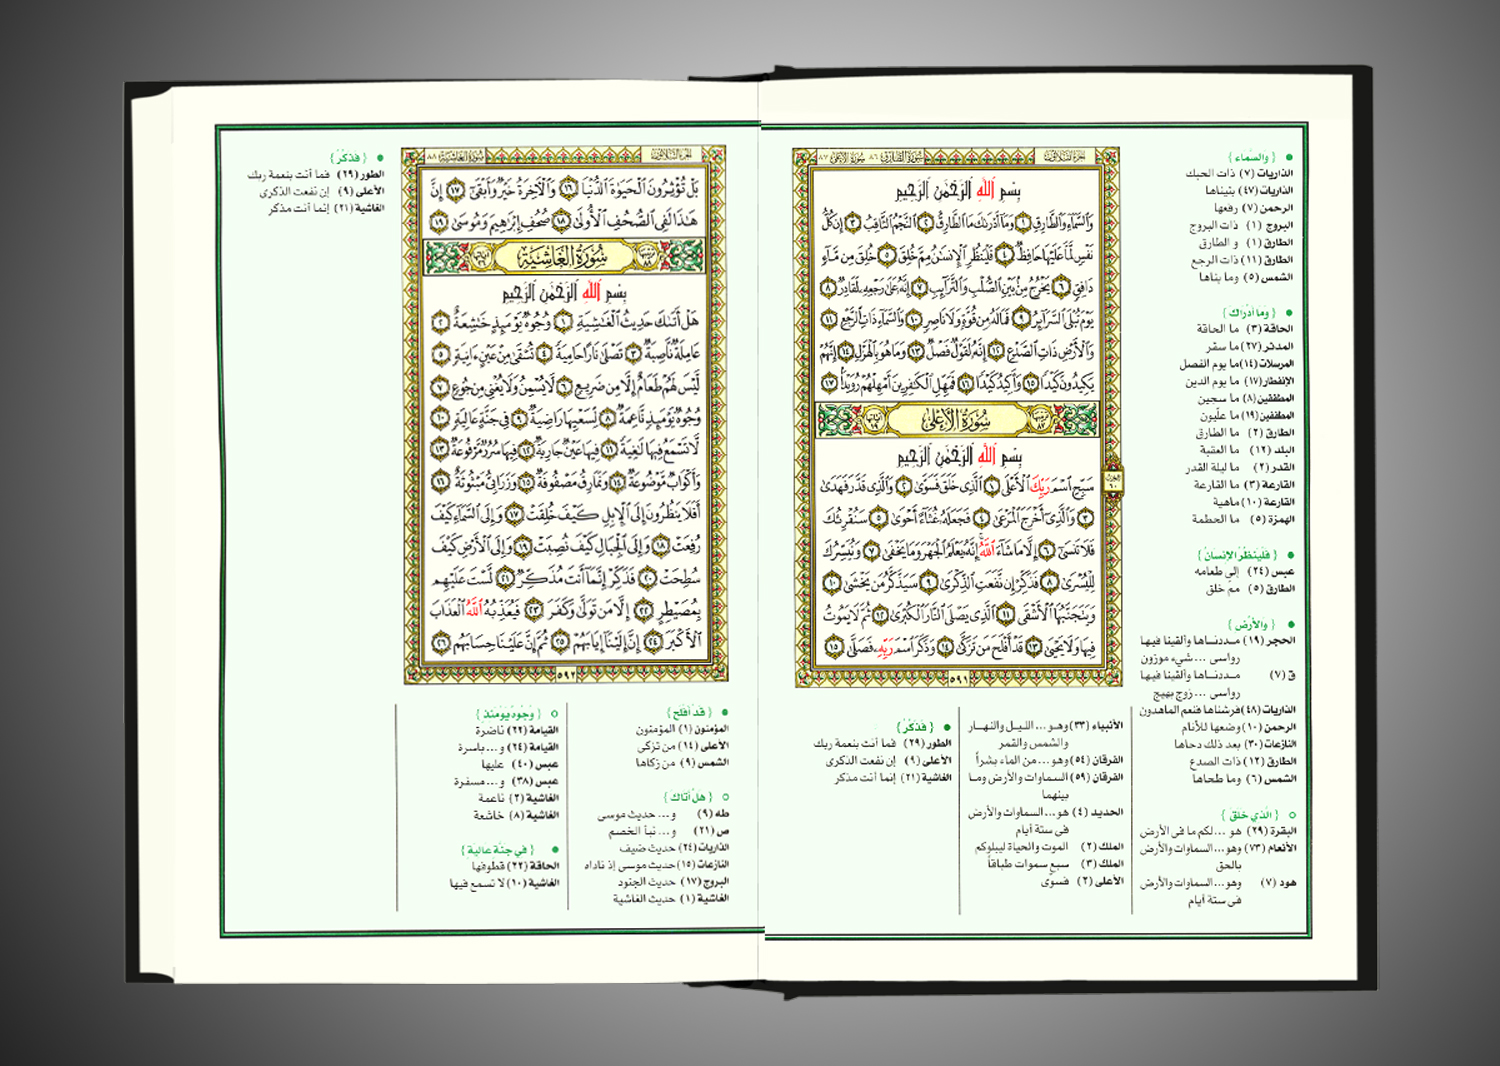 سورة الطارق ٨٦ سورة الأعلى ٨٧
الجزء الثلاثون
بِسْمِ اللَّهِ الرَّحْمَٰنِ الرَّحِيمِ
وَالسَّمَاءِ وَالطَّارِقِ ١ وَمَا أَدْرَاكَ مَا الطَّارِقُ ٢ النَّجْمُ الثَّاقِبُ ٣ إِن كُلُّ
نَفْسٍ لَّمَّا عَلَيْهَا حَافِظٌ ٤ فَلْيَنظُرِ الْإِنسَانُ مِمَّ خُلِقَ ٥ خُلِقَ مِن مَّاءٍ
دَافِقٍ ٦ يَخْرُجُ مِن بَيْنِ الصُّلْبِ وَالتَّرَائِبِ ٧ إِنَّهُ عَلَىٰ رَجْعِهِ لَقَادِرٌ ٨
يَوْمَ تُبْلَى السَّرَائِرُ ٩ فَمَا لَهُ مِن قُوَّةٍ وَلَا نَاصِرٍ ١٠ وَالسَّمَاءِ ذَاتِ الرَّجْعِ ١١
وَالْأَرْضِ ذَاتِ الصَّدْعِ ١٢ إِنَّهُ لَقَوْلٌ فَصْلٌ ١٣ وَمَا هُوَ بِالْهَزْلِ ١٤ إِنَّهُمْ
يَكِيدُونَ كَيْدًا ١٥ وَأَكِيدُ كَيْدًا ١٦ فَمَهِّلِ الْكَافِرِينَ أَمْهِلْهُمْ رُوَيْدًا ١٧
سُورَةُ الأَعْلَى
بِسْمِ اللَّهِ الرَّحْمَٰنِ الرَّحِيمِ
سَبِّحِ اسْمَ رَبِّكَ الْأَعْلَى ١ الَّذِي خَلَقَ فَسَوَّىٰ ٢ وَالَّذِي قَدَّرَ فَهَدَىٰ
٣ وَالَّذِي أَخْرَجَ الْمَرْعَىٰ ٤ فَجَعَلَهُ غُثَاءً أَحْوَىٰ ٥ سَنُقْرِئُكَ
فَلَا تَنسَىٰ ٦ إِلَّا مَا شَاءَ اللَّهُ إِنَّهُ يَعْلَمُ الْجَهْرَ وَمَا يَخْفَىٰ ٧ وَنُيَسِّرُكَ
لِلْيُسْرَىٰ ٨ فَذَكِّرْ إِن نَّفَعَتِ الذِّكْرَىٰ ٩ سَيَذَّكَّرُ مَن يَخْشَىٰ ١٠
وَيَتَجَنَّبُهَا الْأَشْقَى ١١ الَّذِي يَصْلَى النَّارَ الْكُبْرَىٰ ١٢ ثُمَّ لَا يَمُوتُ
فِيهَا وَلَا يَحْيَىٰ ١٣ قَدْ أَفْلَحَ مَن تَزَكَّىٰ ١٤ وَذَكَرَ اسْمَ رَبِّهِ فَصَلَّىٰ ١٥
٥٩١
{ والسَّماء }
الذاريات (٧) ذات الحبك
الذاريات (٤٧) بنيناها
الرحمن (٧) رفعها
البروج (١) ذات البروج
الطارق (١) و الطارق
الطارق (١١) ذات الرجع
الشمس (٥) وما بناها
{ وما أدْرَاكَ }
الحاقة (٣) ما الحاقة
المدثر (٢٧) ما سقر
المرسلات (١٤) ما يوم الفصل
الإنفطار (١٧) ما يوم الدين
المطففين (٨) ما سجين
المطففين (١٩) ما علّيون
الطارق (٢) ما الطارق
البلد (١٢) ما العقبة
القدر (٢) ما ليلة القدر
القارعة (٣) ما القارعة
القارعة (١٠) ماهية
الهمزة (٥) ما الحطمة
{ فَليَنظُر الإنسانُ }
عبس (٢٤) إلى طعامه
الطارق (٥) ممّ خلق
{ والأرْض }
الحجر (١٩) مددناها وألقينا فيها
رواسي ... شيء موزون
ق (٧) مددناها وألقينا فيها
رواسي ... زوج بهيج
الذاريات (٤٨) فرشناها فنعم الماهدون
الرحمن (١٠) وضعها للأنام
النازعات (٣٠) بعد ذلك دحاها
الطارق (١٢) ذات الصدع
الشمس (٦) وما طحاها
{ الَّذي خَلَقَ }
البقرة (٢٩) هو ... لكم ما في الأرض
الأنعام (٧٣) وهو ... السماوات والأرض
بالحق
هود (٧) وهو ... السماوات والأرض
في ستة أيام
الأنبياء (٣٣) وهو ... الليل والنهار
والشمس والقمر
الفرقان (٥٤) وهو ... من الماء بشراً
الفرقان (٥٩) السماوات والأرض وما
بينهما
الحديد (٤) هو ... السماوات والأرض
في ستة أيام
الملك (٢) الموت والحياة ليبلوكم
الملك (٣) سبع سموات طباقاً
الأعلى (٢) فسوّى
{ فَذَكِّرْ }
الطور (٢٩) فما أنت بنعمة ربك
الأعلى (٩) إن نفعت الذكرى
الغاشية (٢١) إنما أنت مذكر
سورة الغاشية ٨٨
الجزء الثلاثون
بَلْ تُؤْثِرُونَ الْحَيَاةَ الدُّنْيَا ١٦ وَالْآخِرَةُ خَيْرٌ وَأَبْقَىٰ ١٧ إِنَّ
هَٰذَا لَفِي الصُّحُفِ الْأُولَىٰ ١٨ صُحُفِ إِبْرَاهِيمَ وَمُوسَىٰ ١٩
سُورَةُ الغَاشِيَةِ
بِسْمِ اللَّهِ الرَّحْمَٰنِ الرَّحِيمِ
هَلْ أَتَاكَ حَدِيثُ الْغَاشِيَةِ ١ وُجُوهٌ يَوْمَئِذٍ خَاشِعَةٌ ٢
عَامِلَةٌ نَّاصِبَةٌ ٣ تَصْلَىٰ نَارًا حَامِيَةً ٤ تُسْقَىٰ مِنْ عَيْنٍ آنِيَةٍ ٥
لَّيْسَ لَهُمْ طَعَامٌ إِلَّا مِن ضَرِيعٍ ٦ لَّا يُسْمِنُ وَلَا يُغْنِي مِن جُوعٍ ٧
وُجُوهٌ يَوْمَئِذٍ نَّاعِمَةٌ ٨ لِّسَعْيِهَا رَاضِيَةٌ ٩ فِي جَنَّةٍ عَالِيَةٍ ١٠
لَّا تَسْمَعُ فِيهَا لَاغِيَةً ١١ فِيهَا عَيْنٌ جَارِيَةٌ ١٢ فِيهَا سُرُرٌ مَّرْفُوعَةٌ ١٣
وَأَكْوَابٌ مَّوْضُوعَةٌ ١٤ وَنَمَارِقُ مَصْفُوفَةٌ ١٥ وَزَرَابِيُّ مَبْثُوثَةٌ ١٦
أَفَلَا يَنظُرُونَ إِلَى الْإِبِلِ كَيْفَ خُلِقَتْ ١٧ وَإِلَى السَّمَاءِ كَيْفَ
رُفِعَتْ ١٨ وَإِلَى الْجِبَالِ كَيْفَ نُصِبَتْ ١٩ وَإِلَى الْأَرْضِ كَيْفَ
سُطِحَتْ ٢٠ فَذَكِّرْ إِنَّمَا أَنتَ مُذَكِّرٌ ٢١ لَّسْتَ عَلَيْهِم
بِمُصَيْطِرٍ ٢٢ إِلَّا مَن تَوَلَّىٰ وَكَفَرَ ٢٣ فَيُعَذِّبُهُ اللَّهُ الْعَذَابَ
الْأَكْبَرَ ٢٤ إِنَّ إِلَيْنَا إِيَابَهُمْ ٢٥ ثُمَّ إِنَّ عَلَيْنَا حِسَابَهُم ٢٦
٥٩٢
{ قد أفلَح }
المؤمنون (١) المؤمنون
الأعلى (١٤) من تزكى
الشمس (٩) من زكاها
{ هل أتاكَ }
طه (٩) و ... حديث موسى
ص (٢١) و ... نبأ الخصم
الذاريات (٢٤) حديث ضيف
النازعات (١٥) حديث موسى إذ ناداه
البروج (١٧) حديث الجنود
الغاشية (١) حديث الغاشية
{ وُجُوهٌ يَوْمَئذٍ }
القيامة (٢٢) ناضرة
القيامة (٢٤) و ... باسرة
عبس (٤٠) عليها
عبس (٣٨) و ... مسفرة
الغاشية (٢) ناعمة
الغاشية (٨) خاشعة
{ في جنَّة عالية }
الحاقة (٢٢) قطوفها
الغاشية (١٠) لا تسمع فيها
{ فَذَكِّرْ }
الطور (٢٩) فما أنت بنعمة ربك
الأعلى (٩) إن نفعت الذكرى
الغاشية (٢١) إنما أنت مذكر